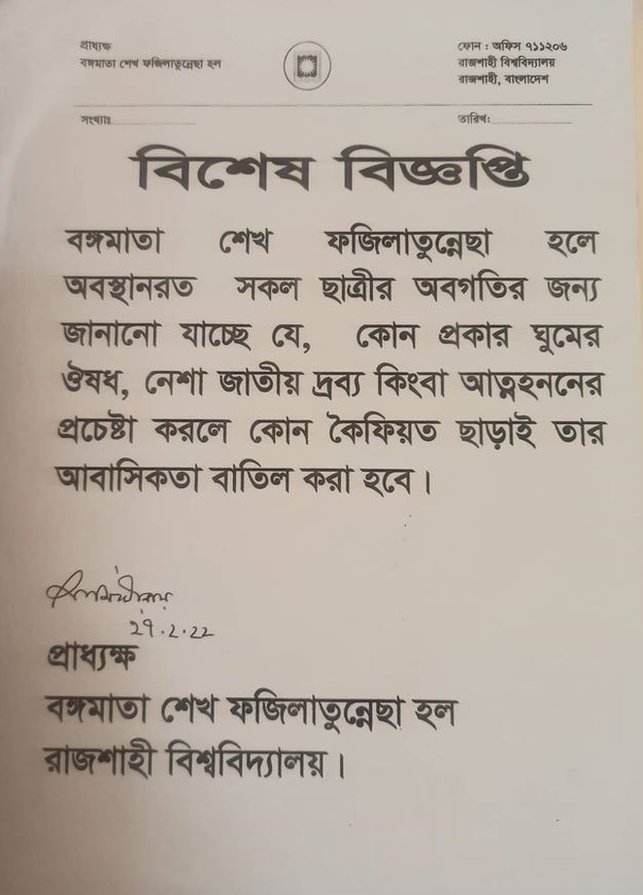 প্রাধ্যক্ষ
বঙ্গমাতা শেখ ফজিলাতুন্নেছা হল
ফোন : অফিস ৭১১২০৬
রাজশাহী বিশ্ববিদ্যালয়
রাজশাহী, বাংলাদেশ
সংখ্যাঃ
তারিখঃ
বিশেষ বিজ্ঞপ্তি
বঙ্গমাতা শেখ ফজিলাতুন্নেছা হলে
অবস্থানরত সকল ছাত্রীর অবগতির জন্য
জানানো যাচ্ছে যে, কোন প্রকার ঘুমের
ঔষধ, নেশা জাতীয় দ্রব্য কিংবা আত্নহননের
প্রচেষ্টা করলে কোন কৈফিয়ত ছাড়াই তার
আবাসিকতা বাতিল করা হবে।
২৭.২.২২
প্রাধ্যক্ষ
বঙ্গমাতা শেখ ফজিলাতুন্নেছা হল
রাজশাহী বিশ্ববিদ্যালয়।